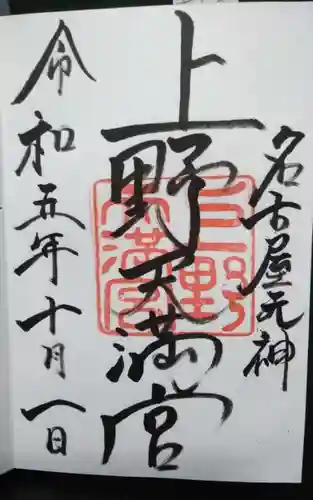 名古屋天神
上野天満宮
令和五年十月八日
上野
天満宮